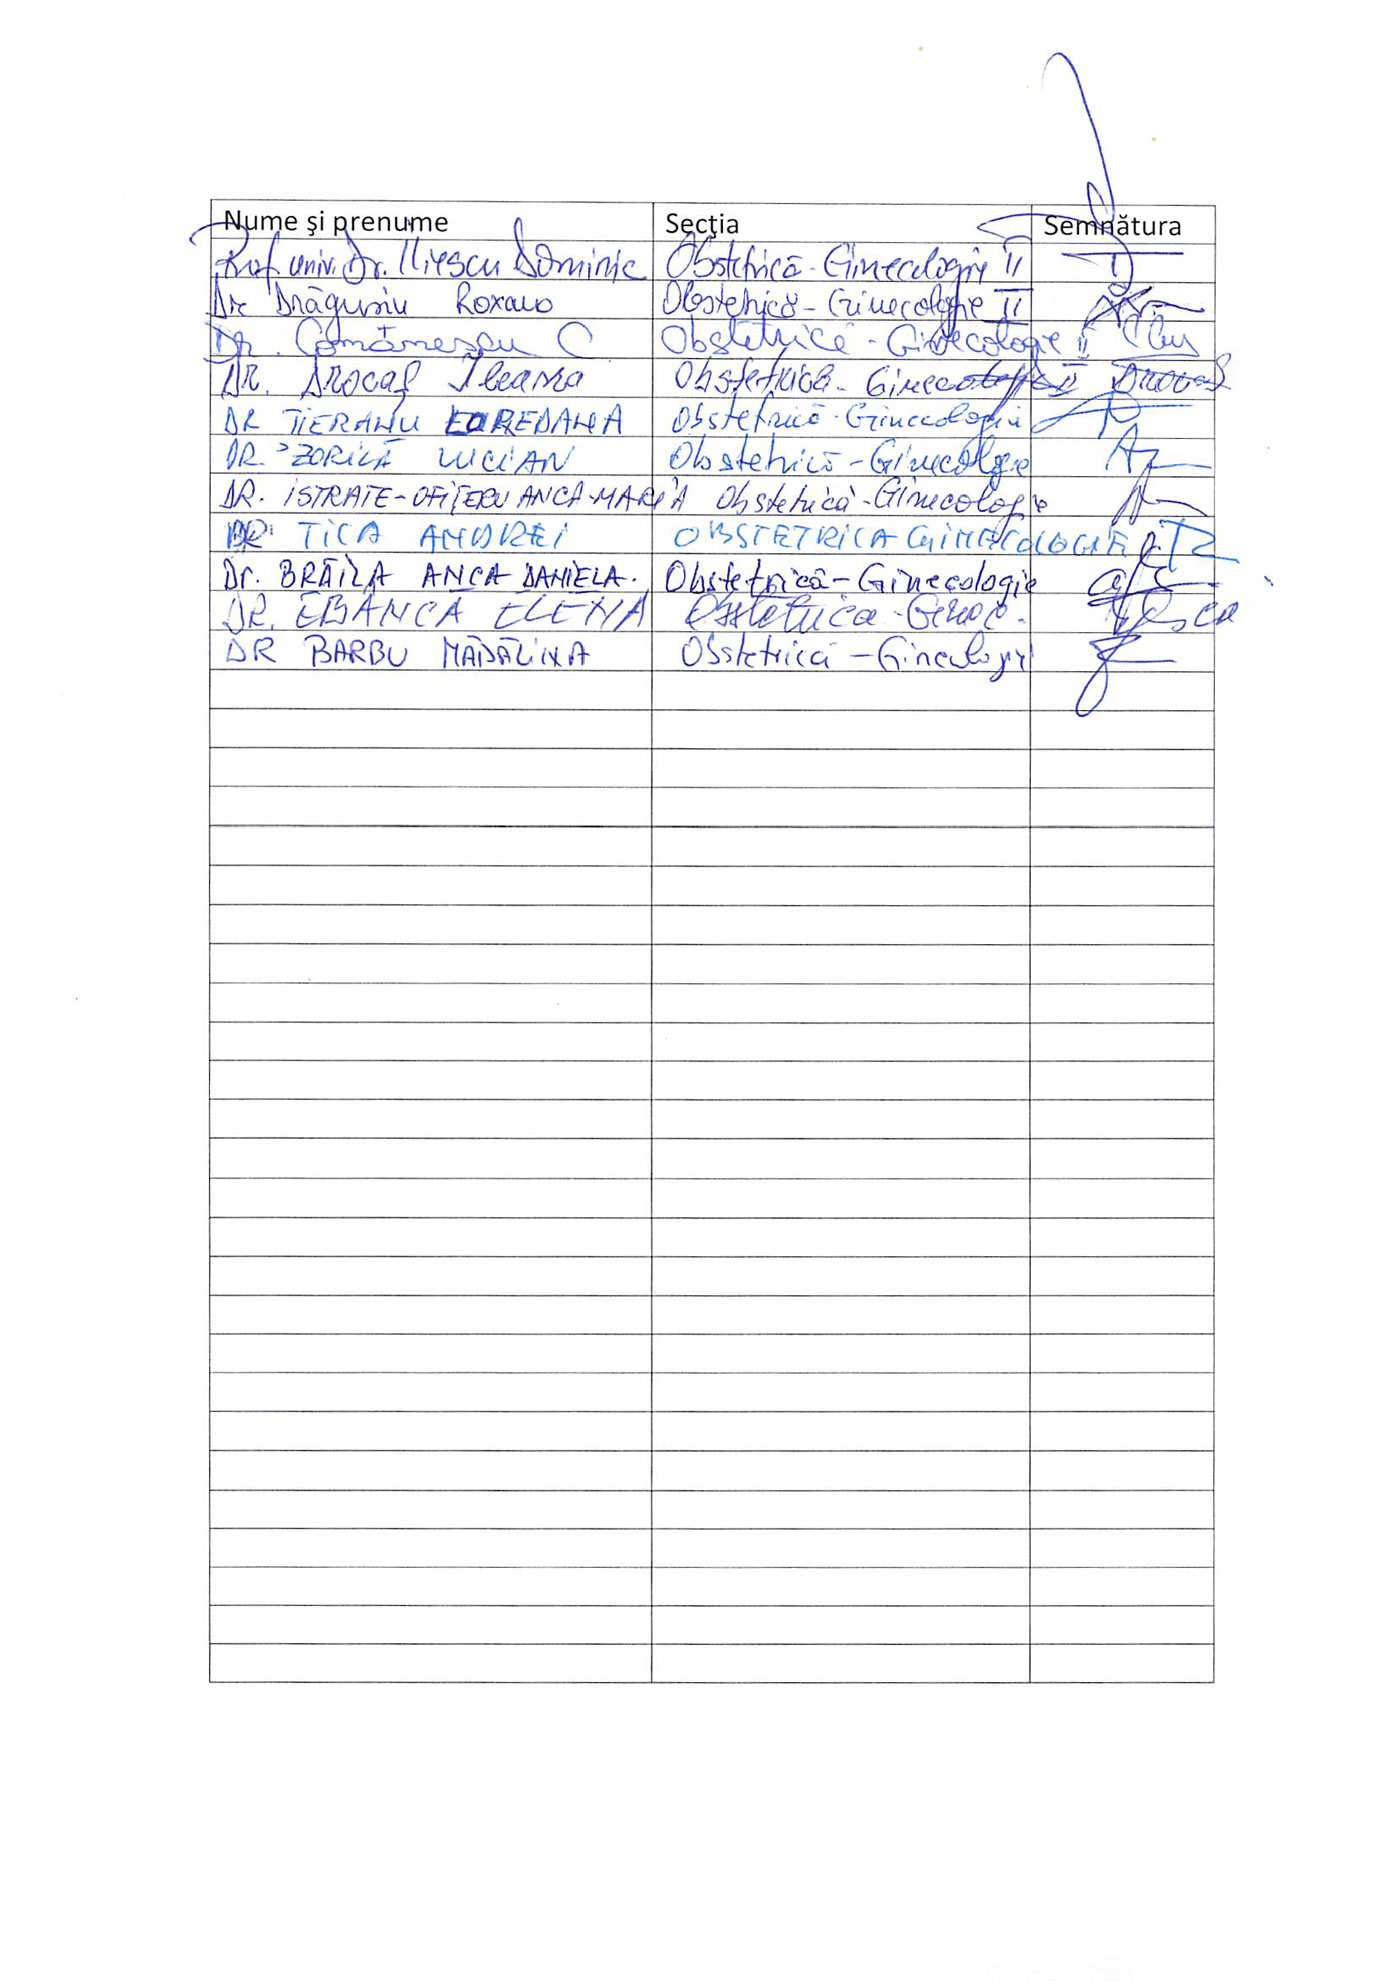 Nume şi prenume Secţia Semnătura
Prof. univ. Dr. Iliescu Dominic Obstetrică - Ginecologie II
Dr Drăgușin Roxana Obstetrică - Ginecologie II
Dr. Comănescu C. Obstetrică - Ginecologie II
DR. Drocaș Ileana Obstetrică - Ginecologie II Drocaș
DR TIERANU LOREDANA Obstetrică - Ginecologie
DR. ZORILĂ LUCIAN Obstetrică - Ginecologie
DR. ISTRATE-OFIȚERU ANCA-MARIA Obstetrică - Ginecologie
DR. TICA ANDREI OBSTETRICA GINECOLOGIE
Dr. BRĂILA ANCA DANIELA. Obstetrică - Ginecologie
DR. EBÂNCA ELENA Obstetrica - Ginec.
DR BARBU MĂDĂLINA Obstetrică - Ginecologie